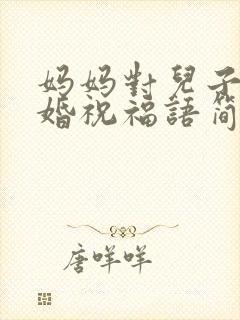 妈妈對兒子
婚祝福語简
唐咩咩